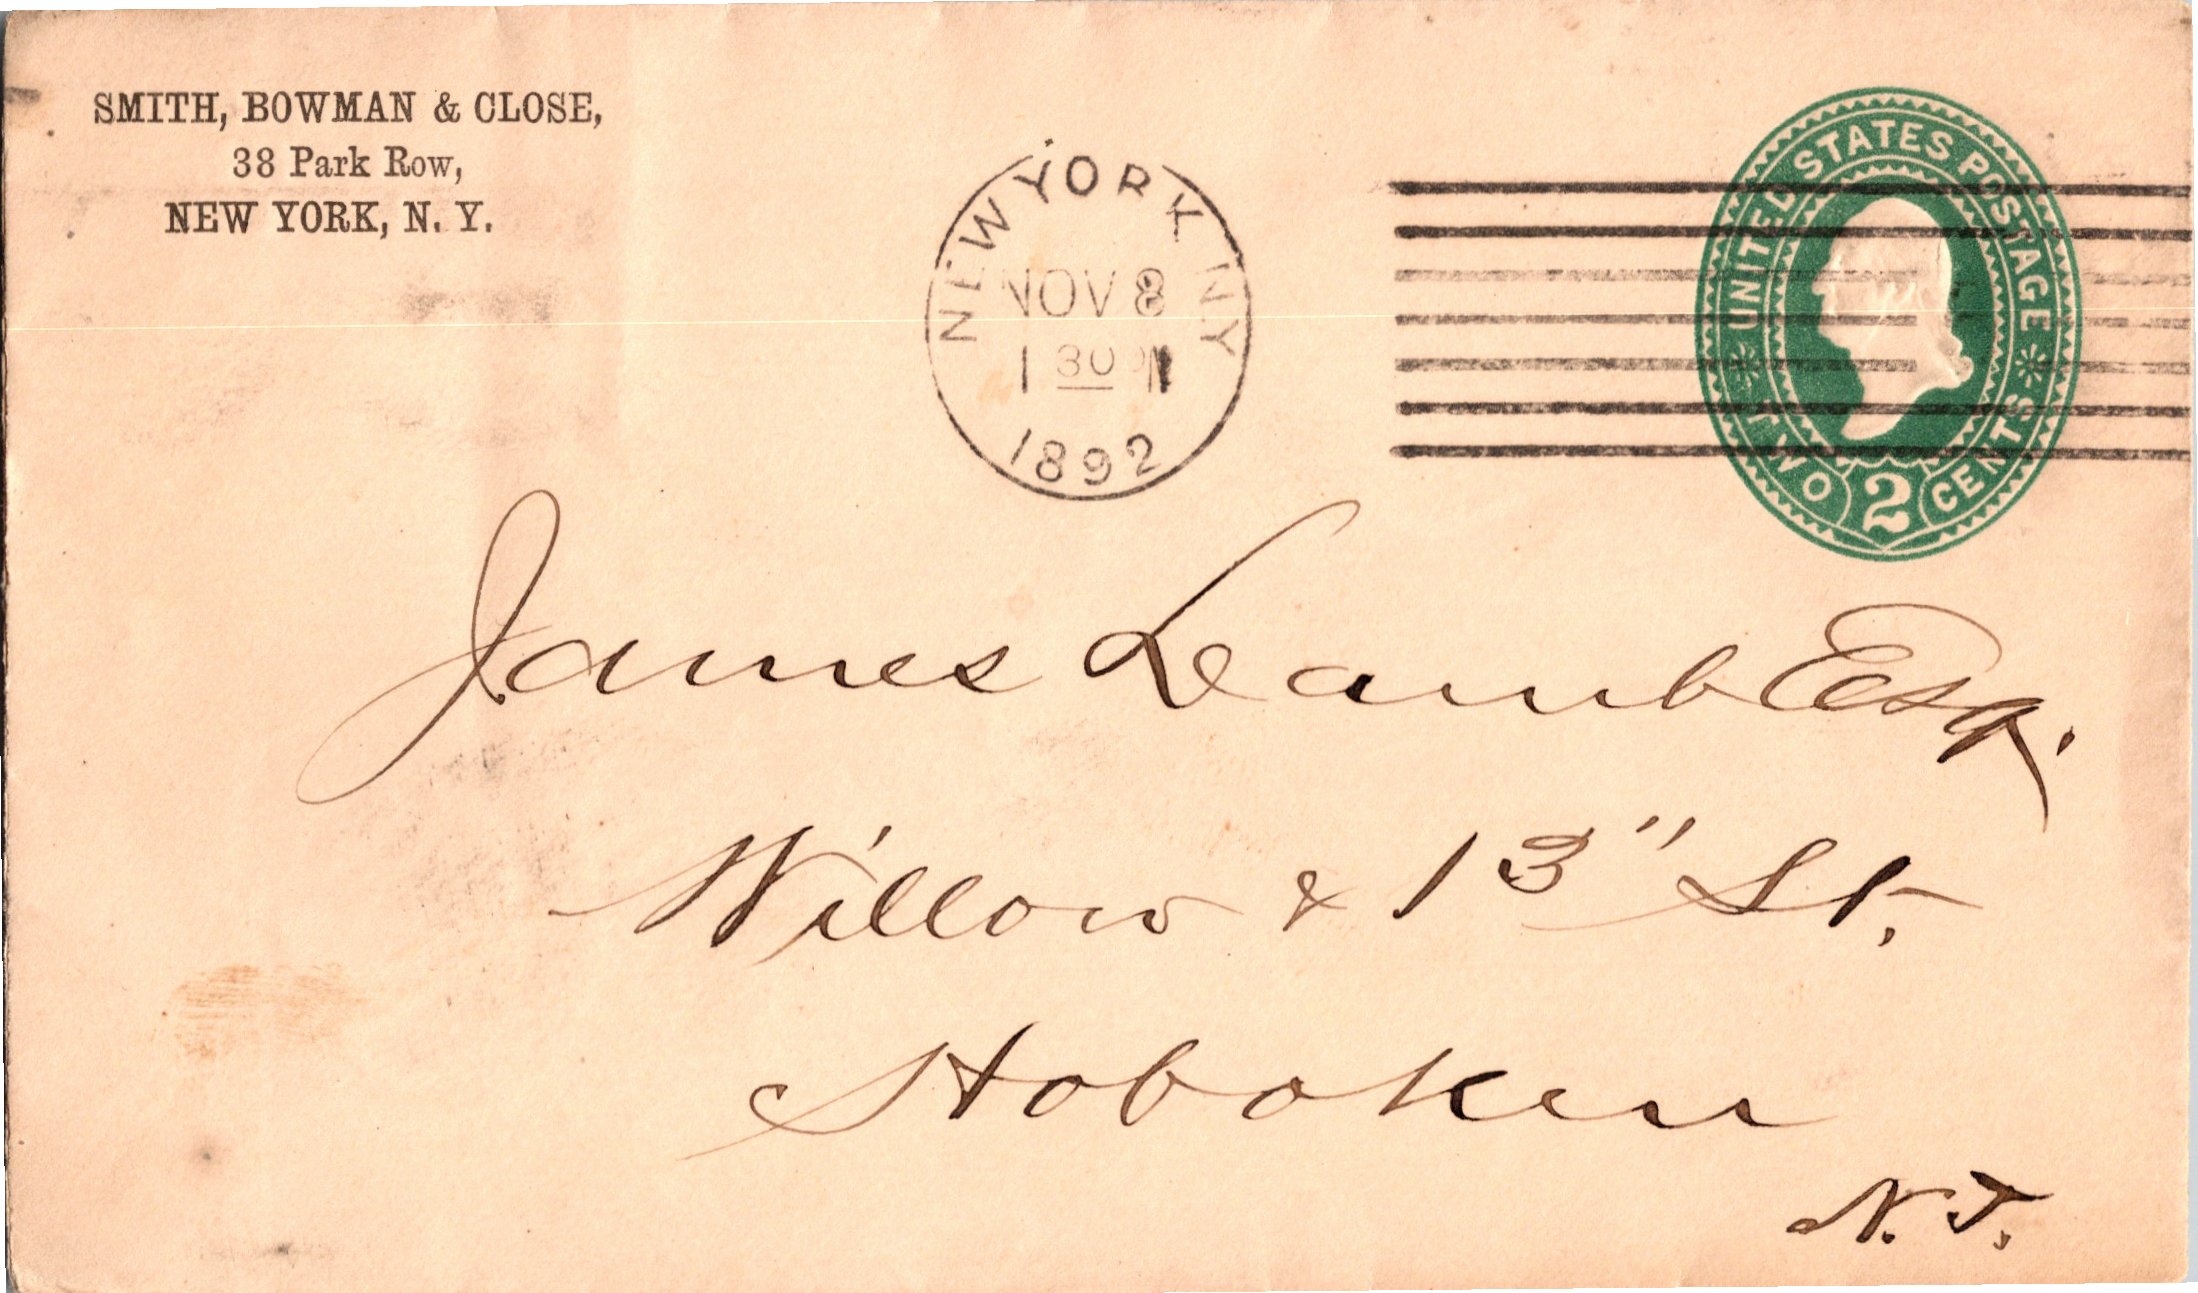 SMITH, BOWMAN & CLOSE,
38 Park Row,
NEW YORK, N. Y.
NEW YORK NY
NOV 8
1 30 PM
1892
UNITED STATES POSTAGE
TWO 2 CENTS
James Leamb Esq.
Willow & 13" St.
Hoboken
N. J.